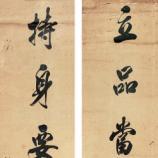 立品當
持身要